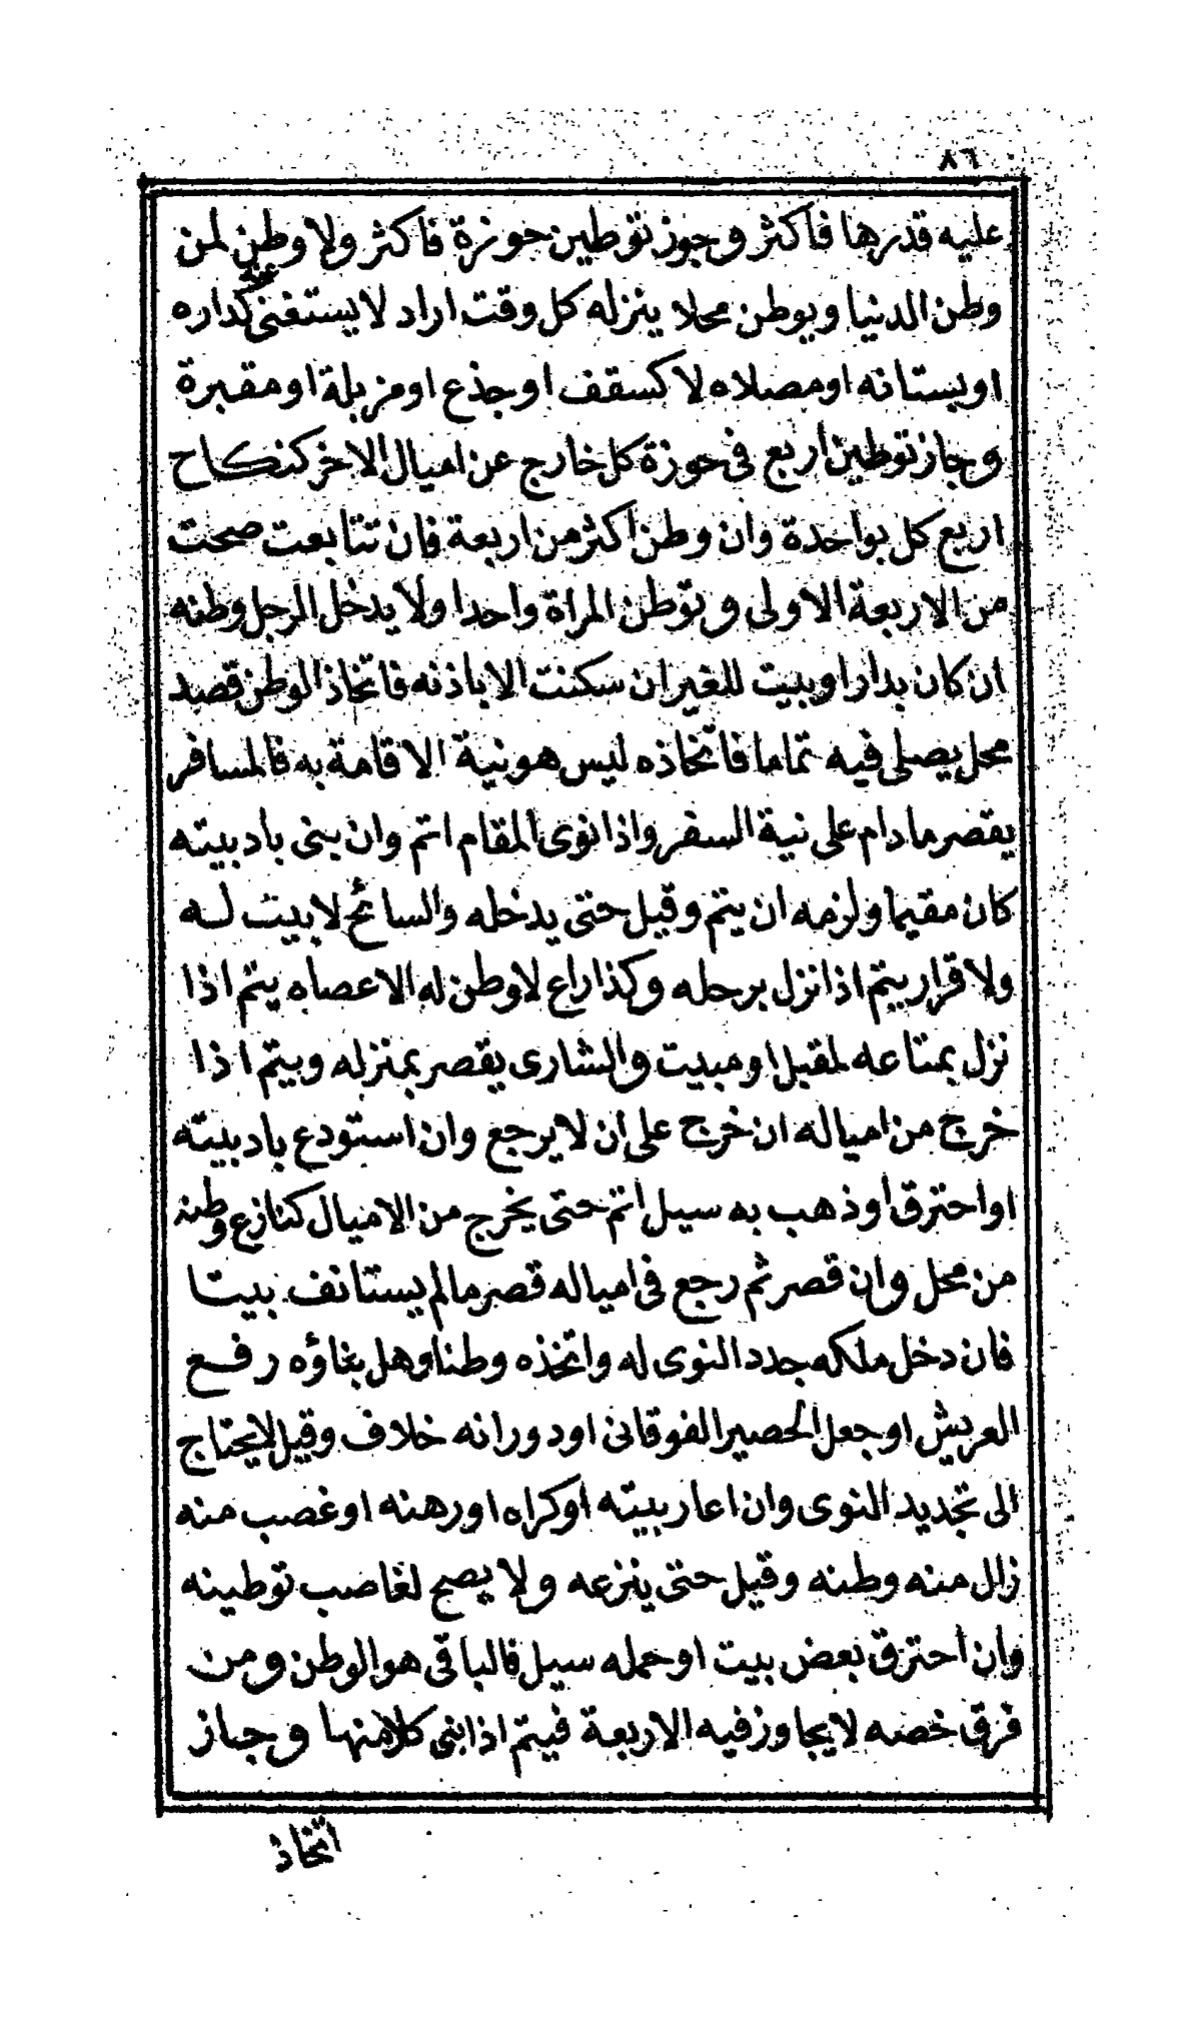 ٨٦
عليه قدرها فاكثر وجوز توطين حوزة فاكثر ولا وطن لمن
وطن الدنيا ويوطن محلا ينزله كل وقت اراد لا يستغنى عنه كداره
او بستانه او مصلاه لا كسقف او جذع او مزبلة او مقبرة
وجاز توطين اربع فى حوزة كل خارج عن اميال الاخر كنكاح
اربع كل بواحدة وان وطن اكثر من اربعة فان تتابعت صحت
من الاربعة الاولى وتوطن المراة واحدا ولا يدخل الرجل وطنه
ان كان بدار او ببيت للغير ان سكنت الا باذنه فاتخاذ الوطن قصد
محل يصلى فيه تماما فاتخاذه ليس هو نية الاقامة به فالمسافر
يقصر مادام على نية السفر واذا نوى المقام اتم وان بنى باد بيته
كان مقيما ولزمه ان يتم وقيل حتى يدخله والسائح لا بيت له
ولا قرار يتم اذا نزل برحله وكذا راع لا وطن له الا عصاه يتم اذا
نزل بمتاعه لمقيل او مبيت والشارى يقصر بمنزله ويتم اذا
خرج من امياله ان خرج على ان لا يرجع وان استودع باد بيته
او احترق او ذهب به سيل اتم حتى يخرج من الاميال كنازع وطنه
من محل وان قصر ثم رجع فى امياله قصر مالم يستانف بيتا
فان دخل ملكه جدد النوى له واتخذه وطنا وهل بناؤه رفع
العريش او جعل الحصير الفوقانى او دورانه خلاف وقيل لا يحتاج
الى تجديد النوى وان اعار بيته او كراه او رهنه او غصب منه
زال منه وطنه وقيل حتى ينزعه ولا يصح لغاصب توطينه
وان احترق بعض بيت او حمله سيل فالباقى هو الوطن ومن
فرق خصه لا يجاوز فيه الاربعة فيتم اذا بنى كلا منها وجاز
اتخاذ